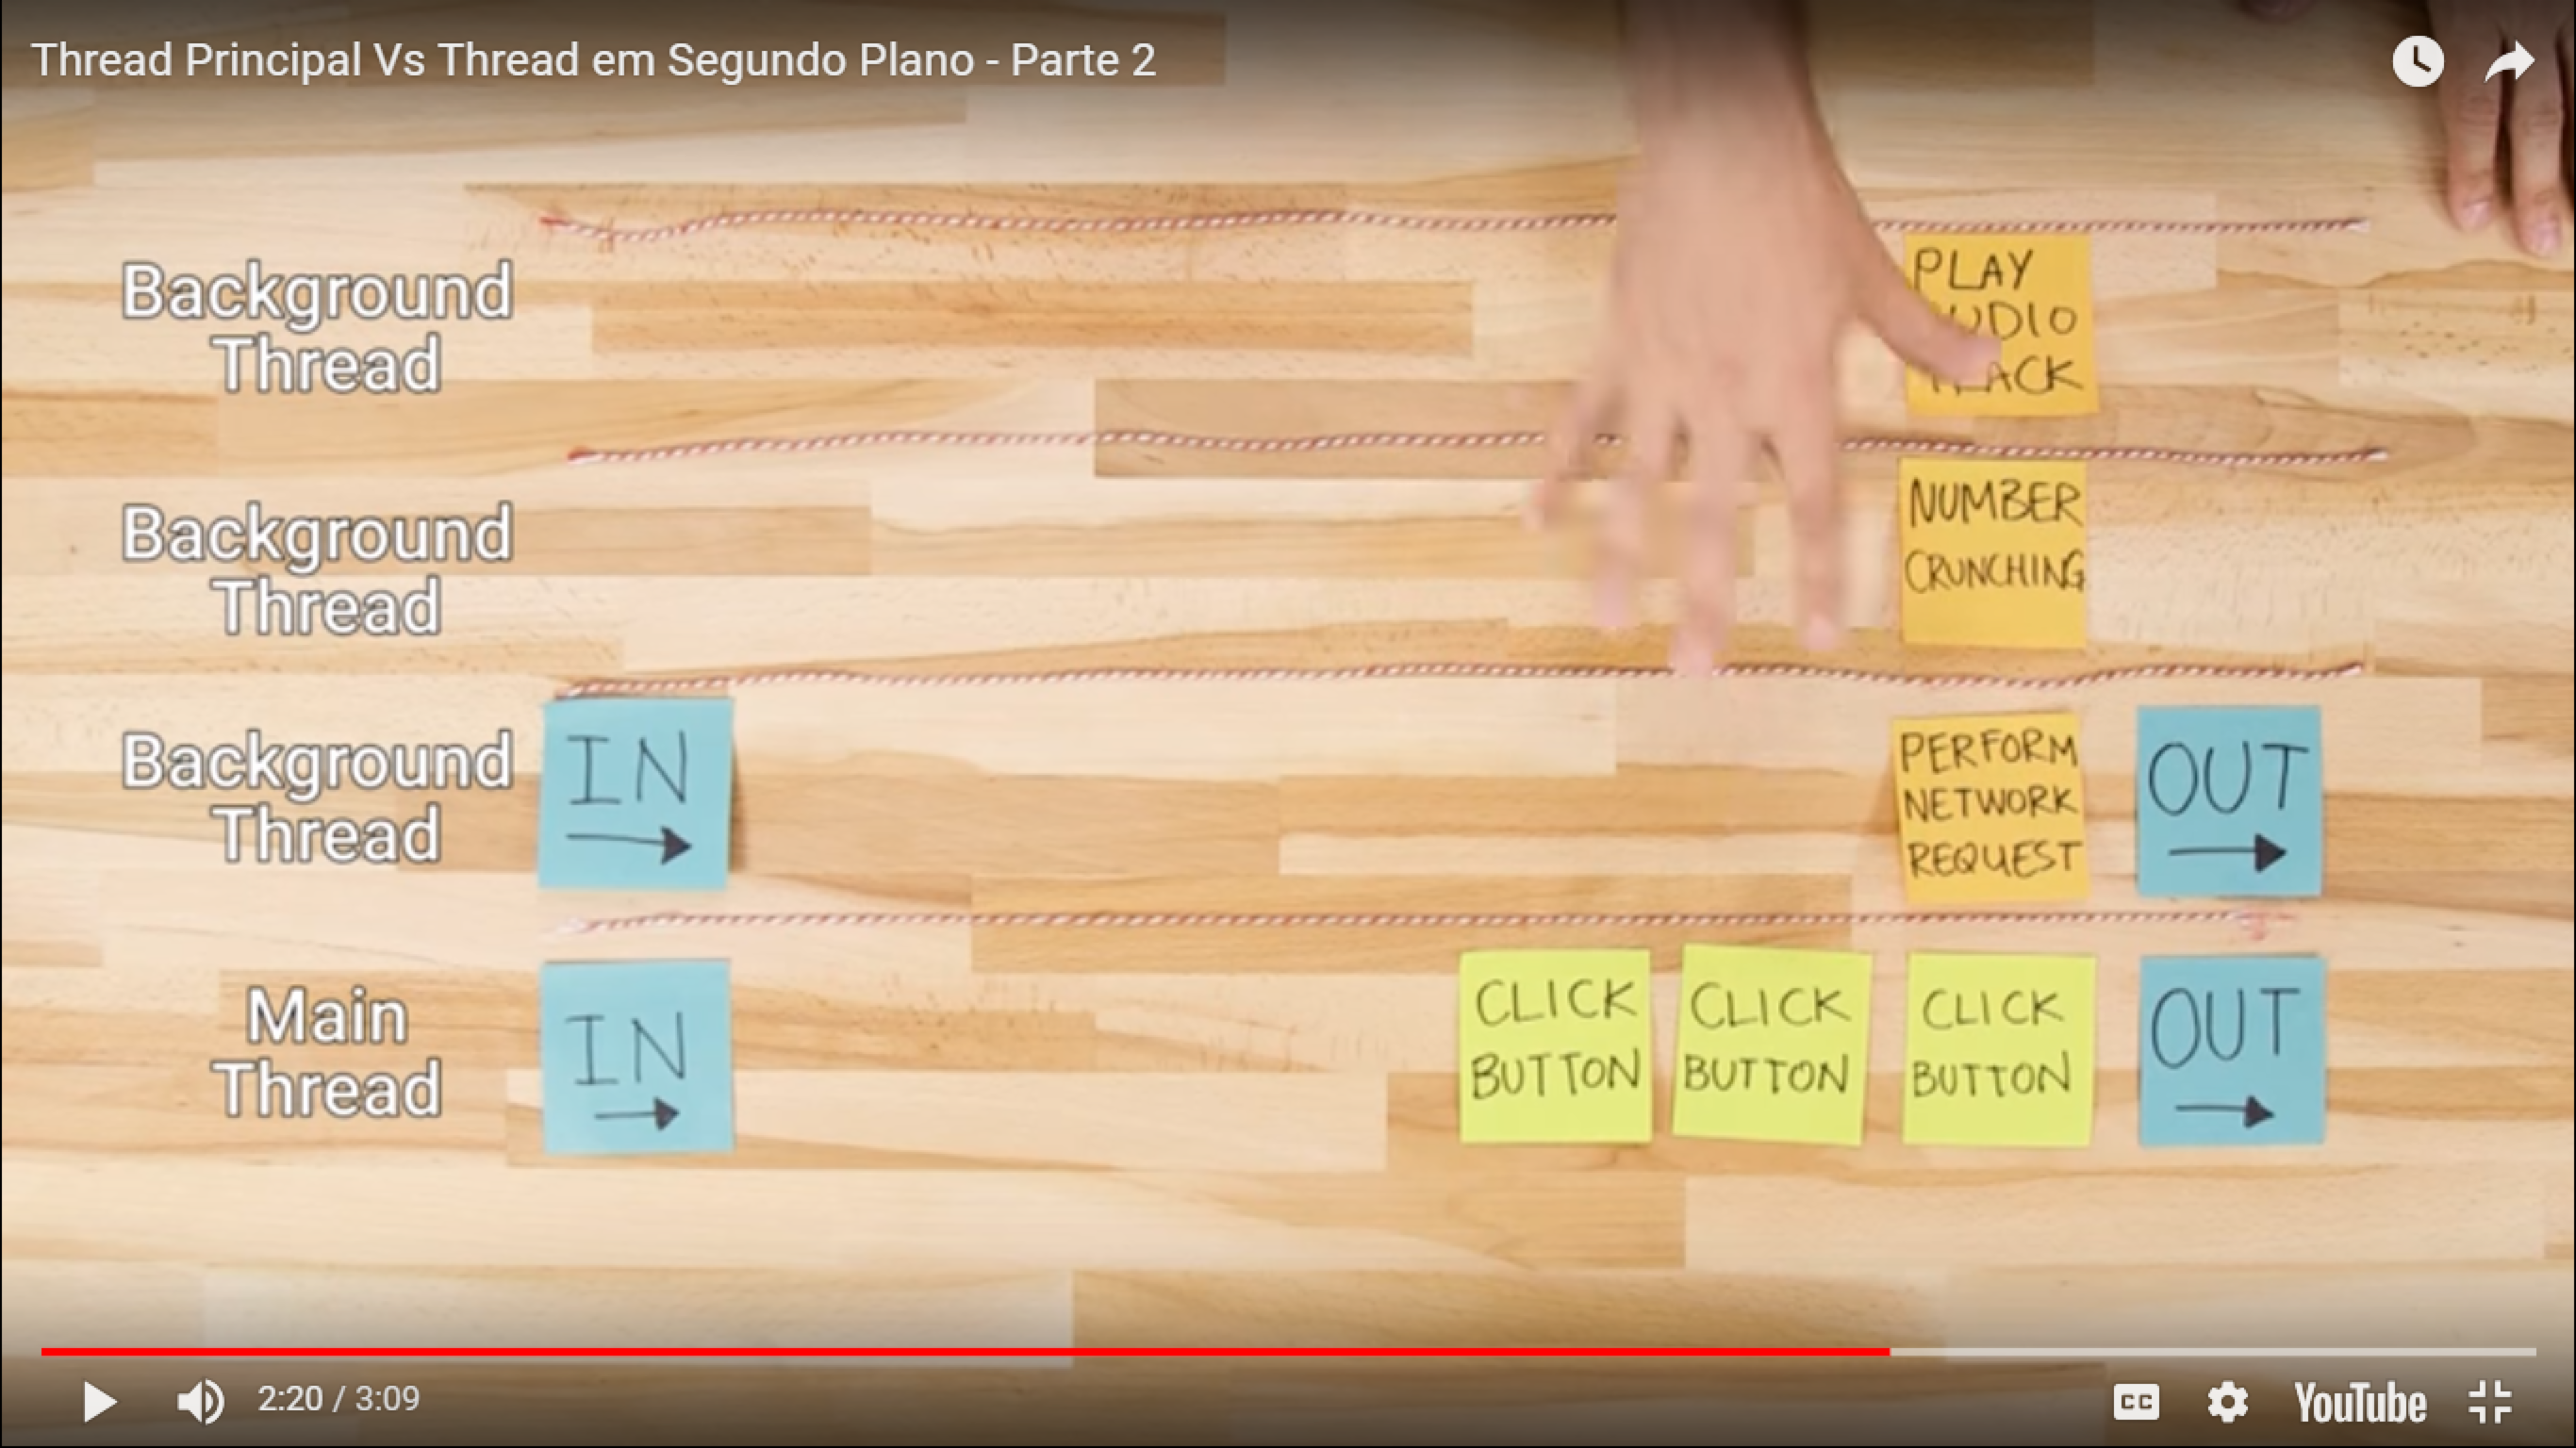 Thread Principal Vs Thread em Segundo Plano - Parte 2
Background
Thread
PLAY
AUDIO
TRACK
Background
Thread
NUMBER
CRUNCHING
Background
Thread
IN
PERFORM
NETWORK
REQUEST
OUT
Main
Thread
IN
CLICK
BUTTON
CLICK
BUTTON
CLICK
BUTTON
OUT
2:20 / 3:09
CC
YouTube